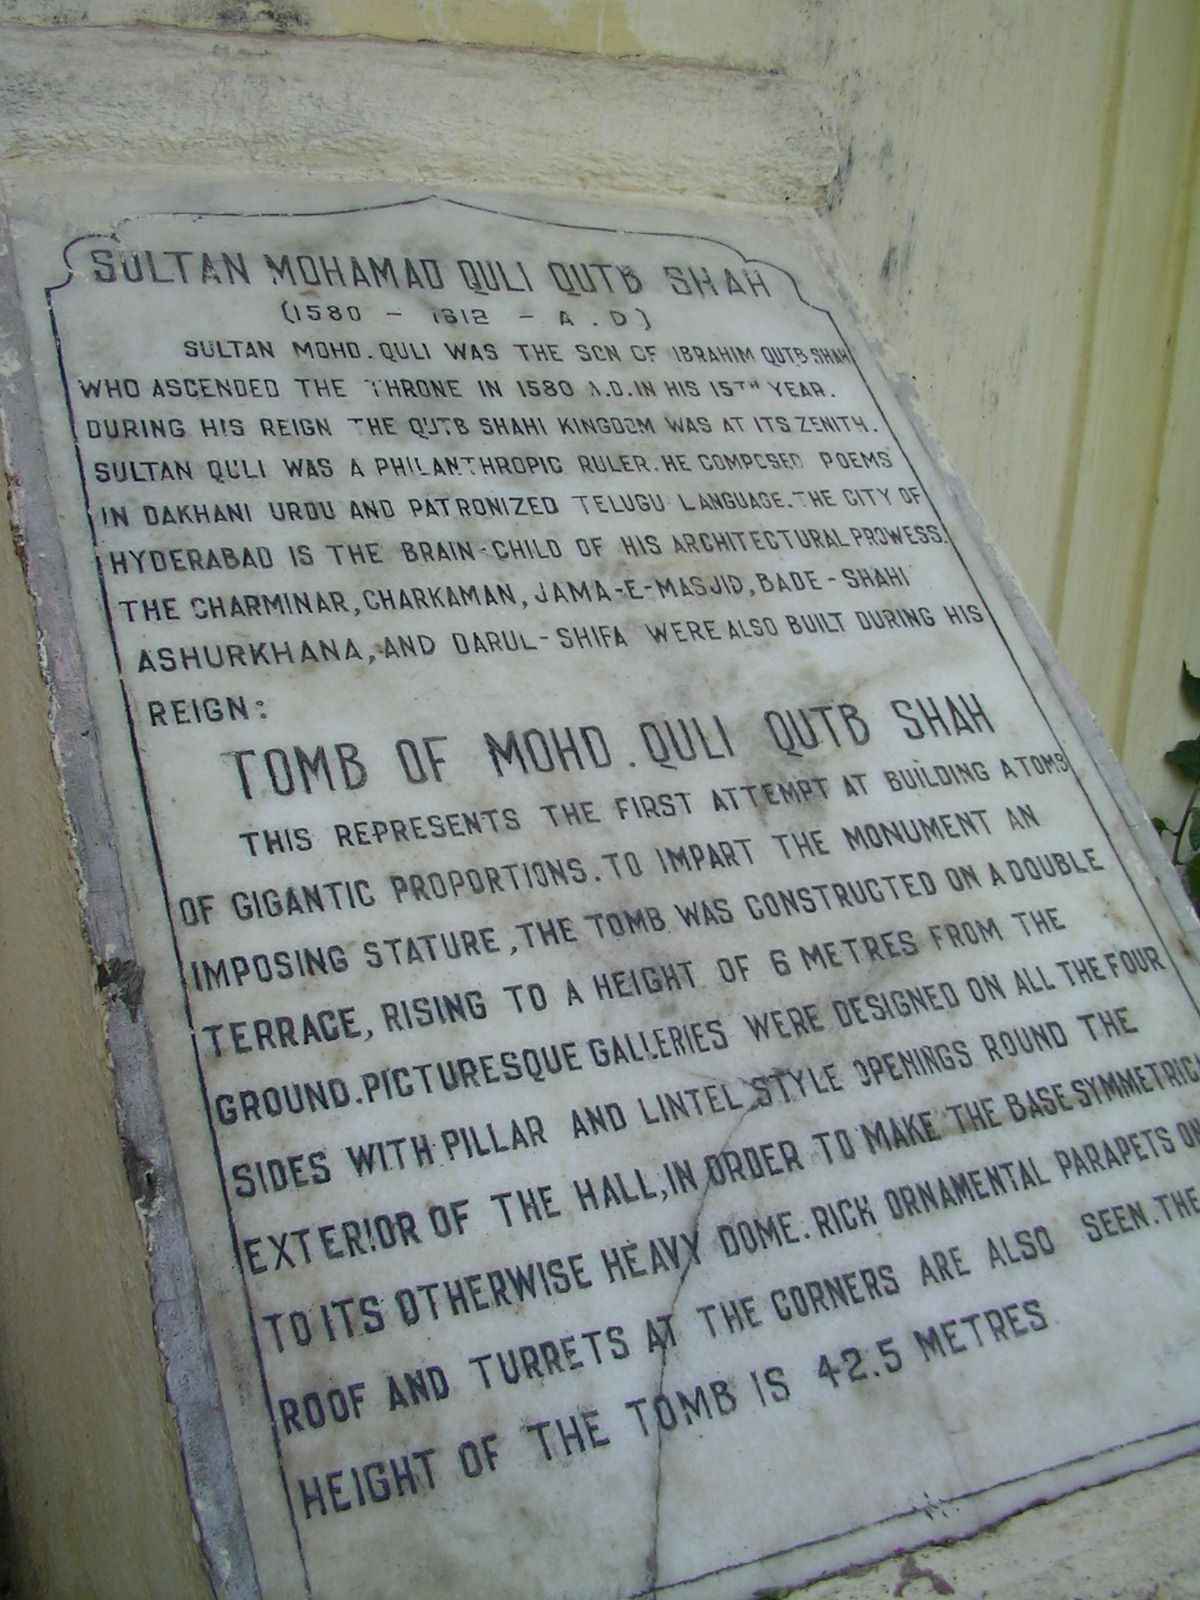 SULTAN MOHAMAD QULI QUTB SHAH
(1580 - 1612 - A.D)
SULTAN MOHD. QULI WAS THE SON OF IBRAHIM QUTB SHAH
WHO ASCENDED THE THRONE IN 1580 A.D. IN HIS 15TH YEAR.
DURING HIS REIGN THE QUTB SHAHI KINGDOM WAS AT ITS ZENITH.
SULTAN QULI WAS A PHILANTHROPIC RULER. HE COMPOSED POEMS
IN DAKHANI URDU AND PATRONIZED TELUGU LANGUAGE. THE CITY OF
HYDERABAD IS THE BRAIN-CHILD OF HIS ARCHITECTURAL PROWESS.
THE CHARMINAR, CHARKAMAN, JAMA-E-MASJID, BADE-SHAHI
ASHURKHANA, AND DARUL-SHIFA WERE ALSO BUILT DURING HIS
REIGN:
TOMB OF MOHD. QULI QUTB SHAH
THIS REPRESENTS THE FIRST ATTEMPT AT BUILDING A TOMB
OF GIGANTIC PROPORTIONS. TO IMPART THE MONUMENT AN
IMPOSING STATURE, THE TOMB WAS CONSTRUCTED ON A DOUBLE
TERRACE, RISING TO A HEIGHT OF 6 METRES FROM THE
GROUND. PICTURESQUE GALLERIES WERE DESIGNED ON ALL THE FOUR
SIDES WITH PILLAR AND LINTEL STYLE OPENINGS ROUND THE
EXTERIOR OF THE HALL, IN ORDER TO MAKE THE BASE SYMMETRIC
TO ITS OTHERWISE HEAVY DOME. RICH ORNAMENTAL PARAPETS ON
ROOF AND TURRETS AT THE CORNERS ARE ALSO SEEN. THE
HEIGHT OF THE TOMB IS 42.5 METRES